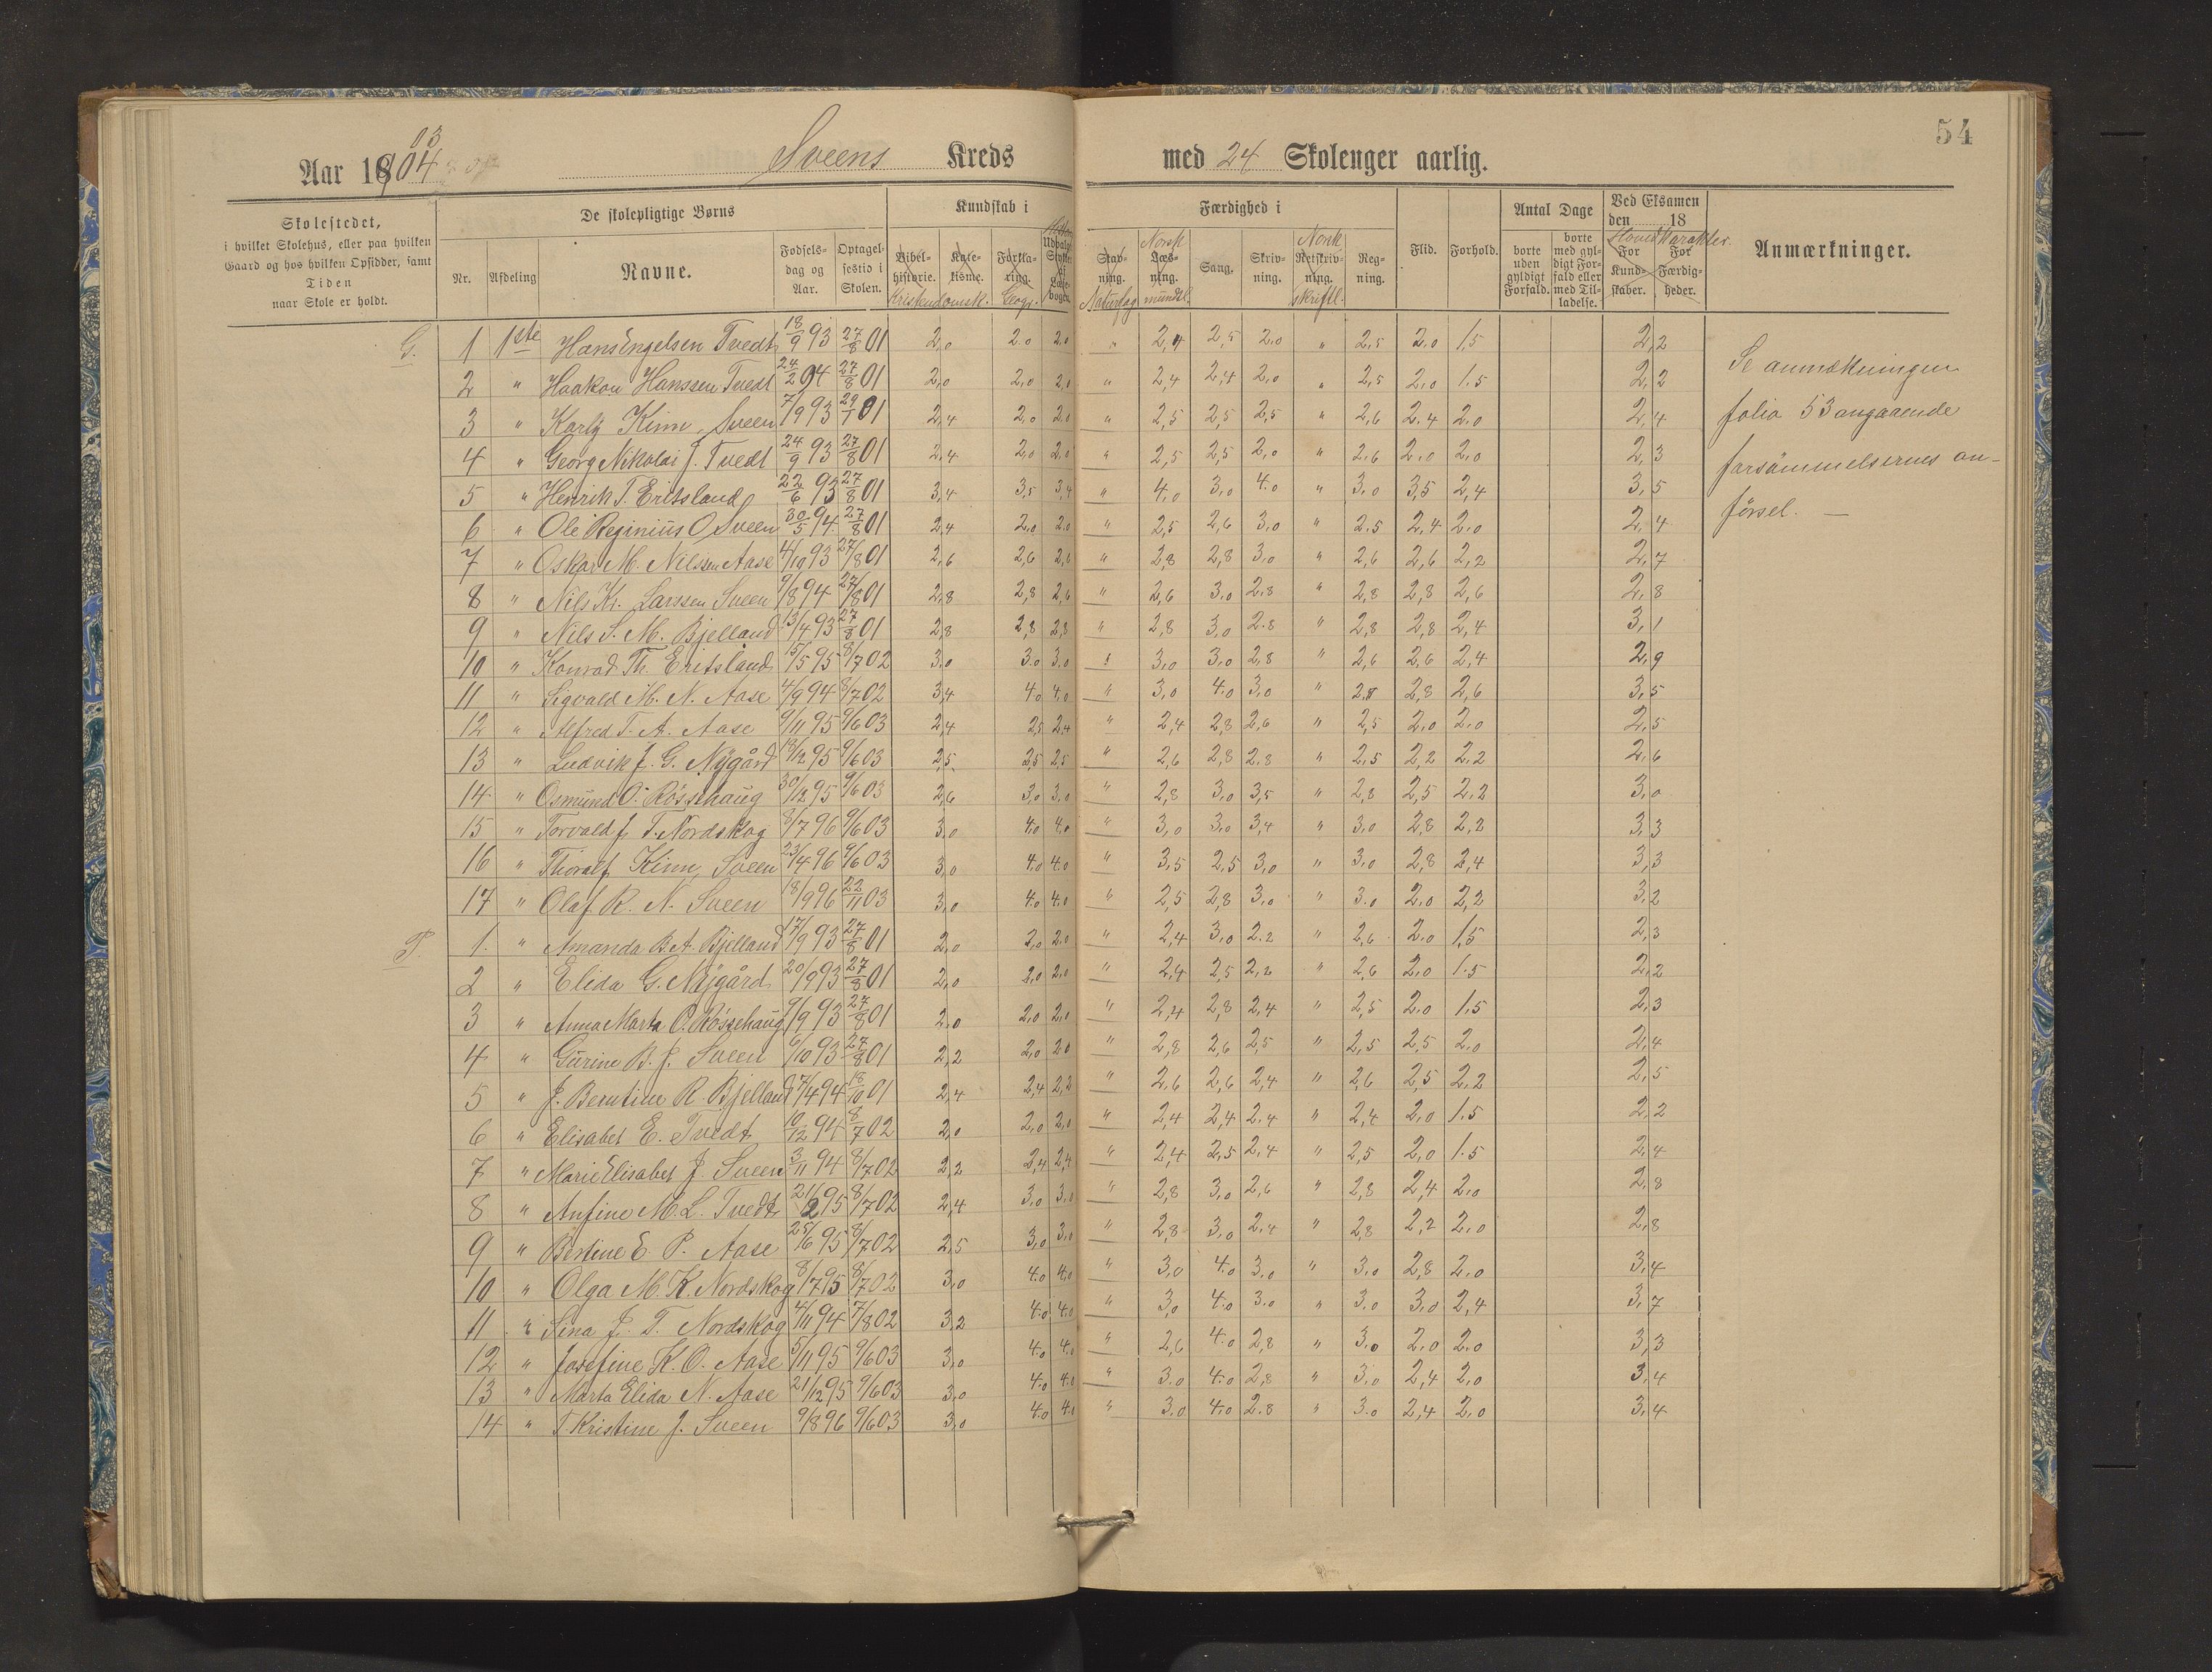 54
03
Aar 1904 Sveens Kreds med 24 Skoleuger aarlig.
Skolestedet, i hvilket Skolehus, eller paa hvilken Gaard og hos hvilken Opsidder, samt Tiden naar Skole er holdt.
De skolepligtige Børns
Nr. Afdeling Navne. Fødsels- dag og Aar. Optagel- sestid i Skolen.
Kundskab i
Bibel- historie. Kate- kisme. Forkla- ring. Udvalgte Stykker af Læse- bogen.
Kristendomsk. Geogr.
Færdighed i
Stav- ning. Læs- ning. Sang. Skriv- ning. Retskriv- ning. Reg- ning.
Naturfag Norsk mundtl. Norsk skriftl.
Flid. Forhold.
Antal Dage
borte uden gyldigt Forfald. borte med gyl- digt For- fald eller med Til- ladelse.
Ved Eksamen den 18
Hovedkarakter.
For Kund- skaber. For Færdig- heder.
Anmærkninger.
G. 1 1ste Hans Engelsen Tvedt 18/9 93 27/8 01 2,0 2.0 2.0 " 2,4 2,5 2.0 " 2,5 2.0 1,5 2,2
2 " Haakon Hanssen Tvedt 24/2 94 27/8 01 2,0 2,0 2,0 " 2,4 2,4 2,0 " 2,5 2,0 1.5 2,2
3 " Karly Kinn, Sveen 7/9 93 29/1 01 2,4 2,0 2.0 " 2,5 2,5 2,5 " 2,6 2.4 2.0 2,4
4 " Georg Nikolai J. Tvedt 24/9 93 27/8 01 2,4 2,0 2.0 " 2,5 2,5 2,0 " 2.6 2.0 2,0 2,3
5 " Henrik T. Eritsland 22/6 93 27/8 01 3,4 3,5 3,4 " 4.0 3,0 4.0 " 3,0 3,5 2,4 3,5
6 " Ole Reginius O. Sveen 30/5 94 27/8 01 2,4 2,0 2.0 " 2,5 2,6 3,0 " 2.5 2,4 2.0 2,4
7 " Oskar M. Nilssen Aase 4/10 93 27/8 01 2,6 2,6 2,6 " 2,8 2,8 3,0 " 2,6 2,6 2,2 2,7
8 " Nils Kr. Larssen Sveen 9/8 94 27/8 01 2,8 2,8 2,6 " 2,6 3,0 2.8 " 2,8 2,8 2,6 2,8
9 " Nils S. M. Bjelland 13/4 93 27/8 01 2,8 2,8 2,8 " 2,8 3,0 2.8 " 2,8 2,8 2,4 3,1
10 " Konrad Th. Eritsland 15/5 95 8/7 02 3,0 3.0 3.0 " 3,0 3,0 2,8 " 2,6 2,6 2,4 2,9
11 " Sigvald M. N. Aase 4/9 94 8/7 02 3,4 4,0 4,0 " 3,0 4.0 3,0 " 2.8 2,8 2,6 3,5
12 " Alfred T. A. Aase 9/11 95 9/6 03 2,4 2,5 2,4 " 2,4 2,8 2,6 " 2,5 2,0 2.0 2,5
13 " Ludvik J. G. Nygård 18/12 95 9/6 03 2,5 2,5 2,5 " 2,6 2,8 2.8 " 2.5 2,2 2.2 2,6
14 " Osmund O. Røssehaug 30/12 95 9/6 03 2,6 3,0 3,0 " 2,8 3,0 3,5 " 2,8 2,5 2.2 3,0
15 " Torvald J. T. Nordskog 8/7 96 9/6 03 3,0 4,0 4.0 " 3,0 3,0 3,4 " 3,0 2,8 2,2 3,3
16 " Thoralf Kinn, Sveen 23/4 96 9/6 03 3,0 4.0 4.0 " 3,5 2,5 3,0 " 3,0 2,8 2,4 3,3
17 " Olaf R. N. Sveen 18/9 96 22/11 03 3,0 4.0 4.0 " 2,5 2,8 3,0 " 3.0 2,0 2,2 3,2
P. 1. " Amanda B. A. Bjelland 17/9 93 27/8 01 2,0 2,0 2.0 " 2,4 3,0 2.2 " 2,6 2.0 1,5 2,3
2 " Elida G. Nygård 20/9 93 27/8 01 2,0 2,0 2,0 " 2,4 2,5 2,2 " 2,6 2,0 1.5 2,2
3 " Anna Marta O. Røssehaug 9/9 93 27/8 01 2,0 2,0 2,0 " 2,4 2,8 2,4 " 2,5 2,0 1.5 2,3
4 " Gurine B. J. Sveen 6/10 93 27/8 01 2,2 2,0 2,0 " 2,8 2,6 2,5 " 2,5 2,5 2.0 2,4
5 " J. Berntine R. Bjelland 7/4 94 18/10 01 2,4 2,4 2,2 " 2,6 2,6 2,4 " 2,6 2,5 2.2 2,5
6 " Elisabet E. Tvedt 10/12 94 8/7 02 2,0 2,0 2.0 " 2,4 2,4 2.4 " 2,4 2.0 1.5 2,2
7 " Marie Elisabet J. Sveen 3/11 94 8/7 02 2,2 2,4 2,4 " 2,4 2,5 2,4 " 2,5 2,0 1.5 2,4
8 " Anfine M. L. Tvedt 21/2 95 8/7 02 2,4 3,0 3,0 " 2,8 3,0 2,6 " 2,8 2,4 2.0 2,8
9 " Bertine E. P. Aase 25/6 95 8/7 02 2,5 3,0 3,0 " 2,8 3,0 2.4 " 2,8 2,2 2,0 2,8
10 " Olga M. K. Nordskog 8/7 95 8/7 02 3,0 4.0 4,0 " 3,0 4.0 3,0 " 3,0 2,8 2,0 3,4
11 " Sina J. T. Nordskog 4/11 94 7/8 02 3,2 4.0 4.0 " 3,0 4.0 3.0 " 3,0 3,0 2,4 3,7
12 " Josefine K. O. Aase 5/11 95 9/6 03 3,0 4,0 4.0 " 2,6 4.0 2,8 " 3,0 2,0 2,0 3,3
13 " Marta Elida N. Aase 21/12 95 9/6 03 3,0 4.0 4.0 " 3.0 4.0 2,8 " 3,0 2,4 2,0 3,4
14 " T. Kristine J. Sveen 9/8 96 9/6 03 3,0 4.0 4.0 " 3,0 4,0 2.8 " 3.0 2,4 2,0 3,4
Se anmerkningen
folio 53 angaaende
forsømmelsernes an-
førsel. —